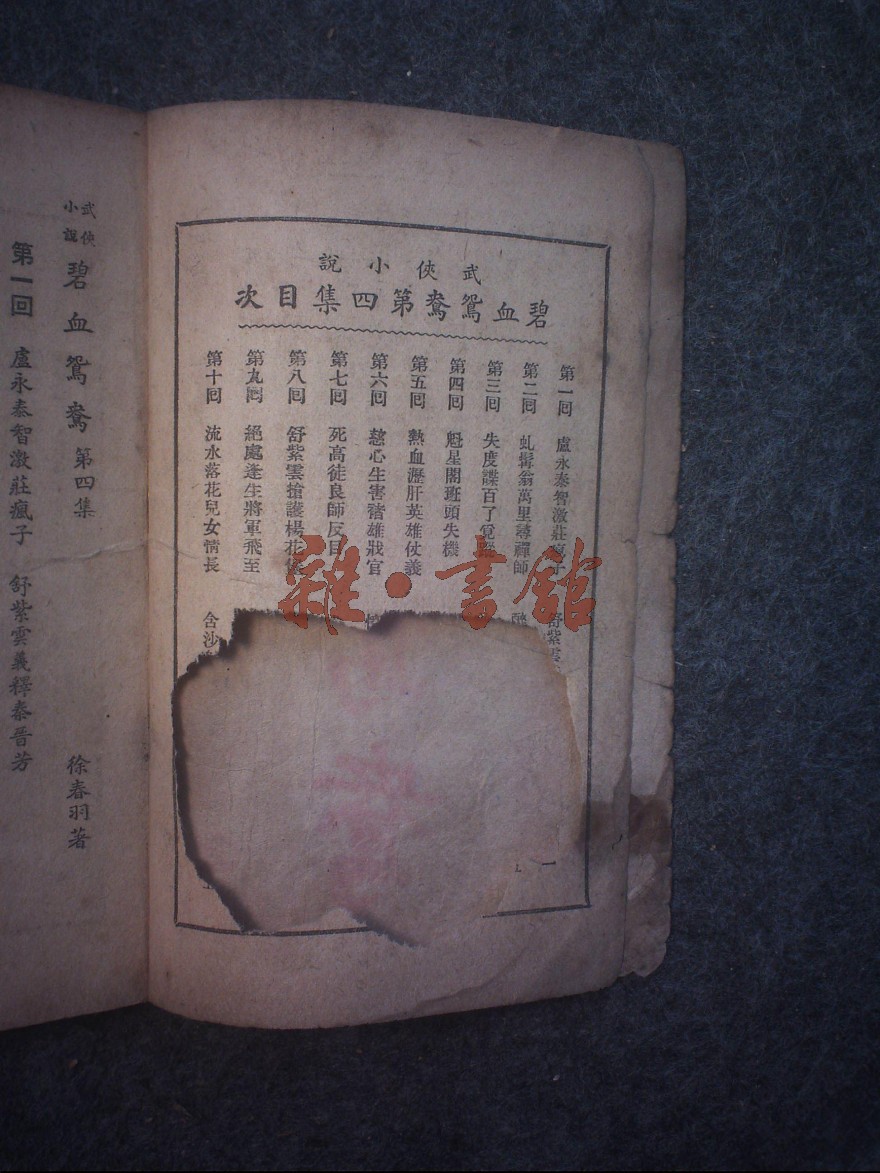 武俠小說
碧血鴛鴦第四集目次
第一回 盧永泰智激莊瘋子 舒紫雲
第二回 虬髯翁萬里尋禪師
第三回 失度諜百了
第四回 魁星閣班頭失機
第五回 熱血瀝肝英雄仗義
第六回 慈心生害豬雄戕官
第七回 死高徒良師反目
第八回 舒紫雲搶護楊花
第九回 絕處逢生將軍飛至
第十回 流水落花兒女情長 含沙
一
武俠小說 碧血鴛鴦 第四集
徐春羽著
第一回 盧永泰智激莊瘋子 舒紫雲義釋秦晉芳
雜·書館